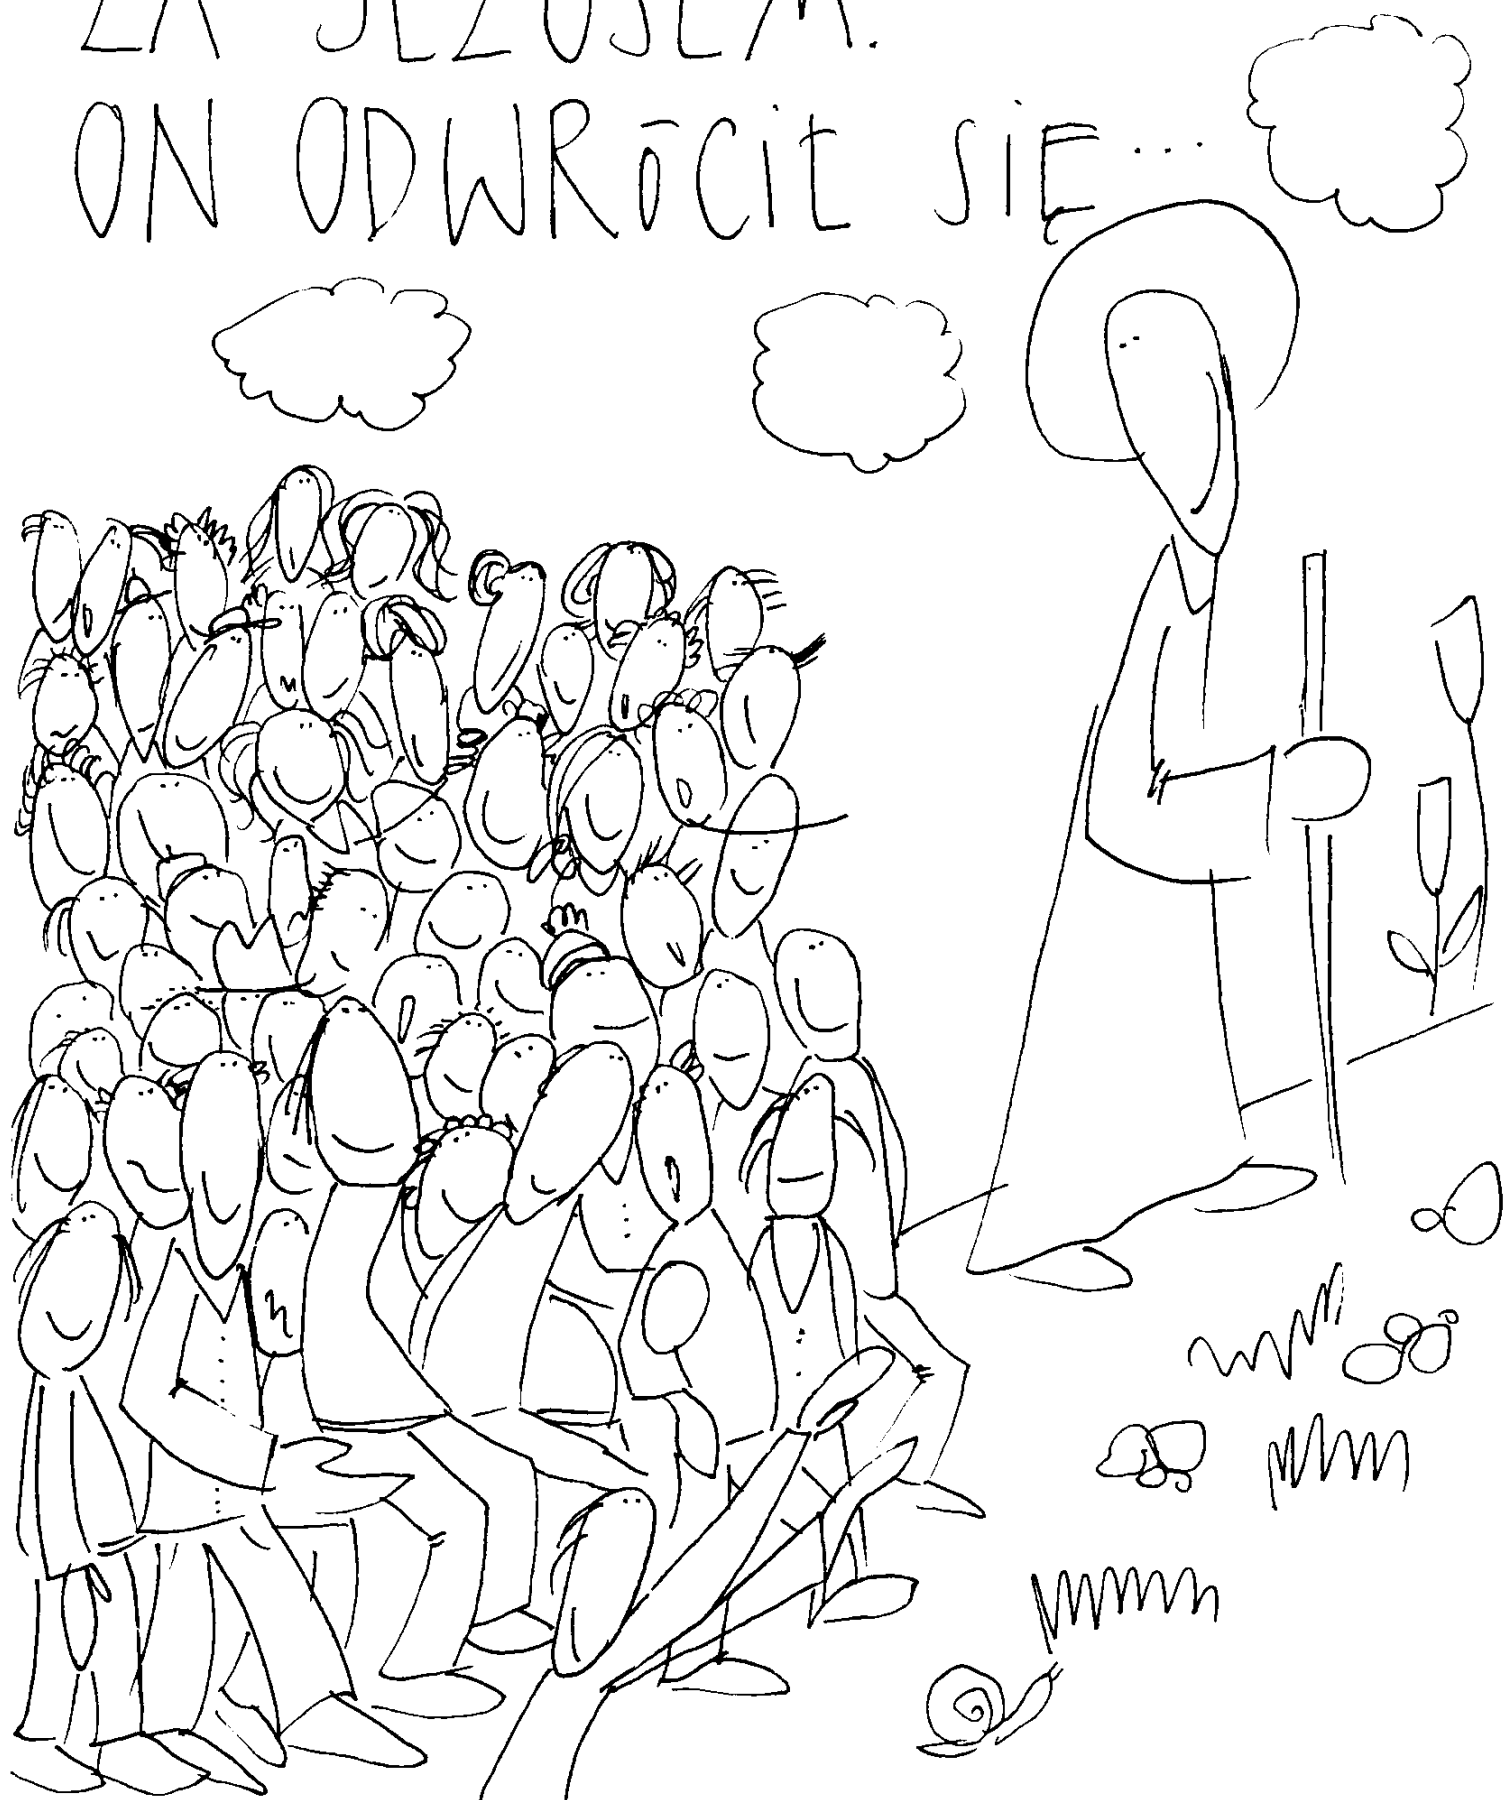 ZA JEZUSEM.
ON ODWRÓCIŁ SIĘ...